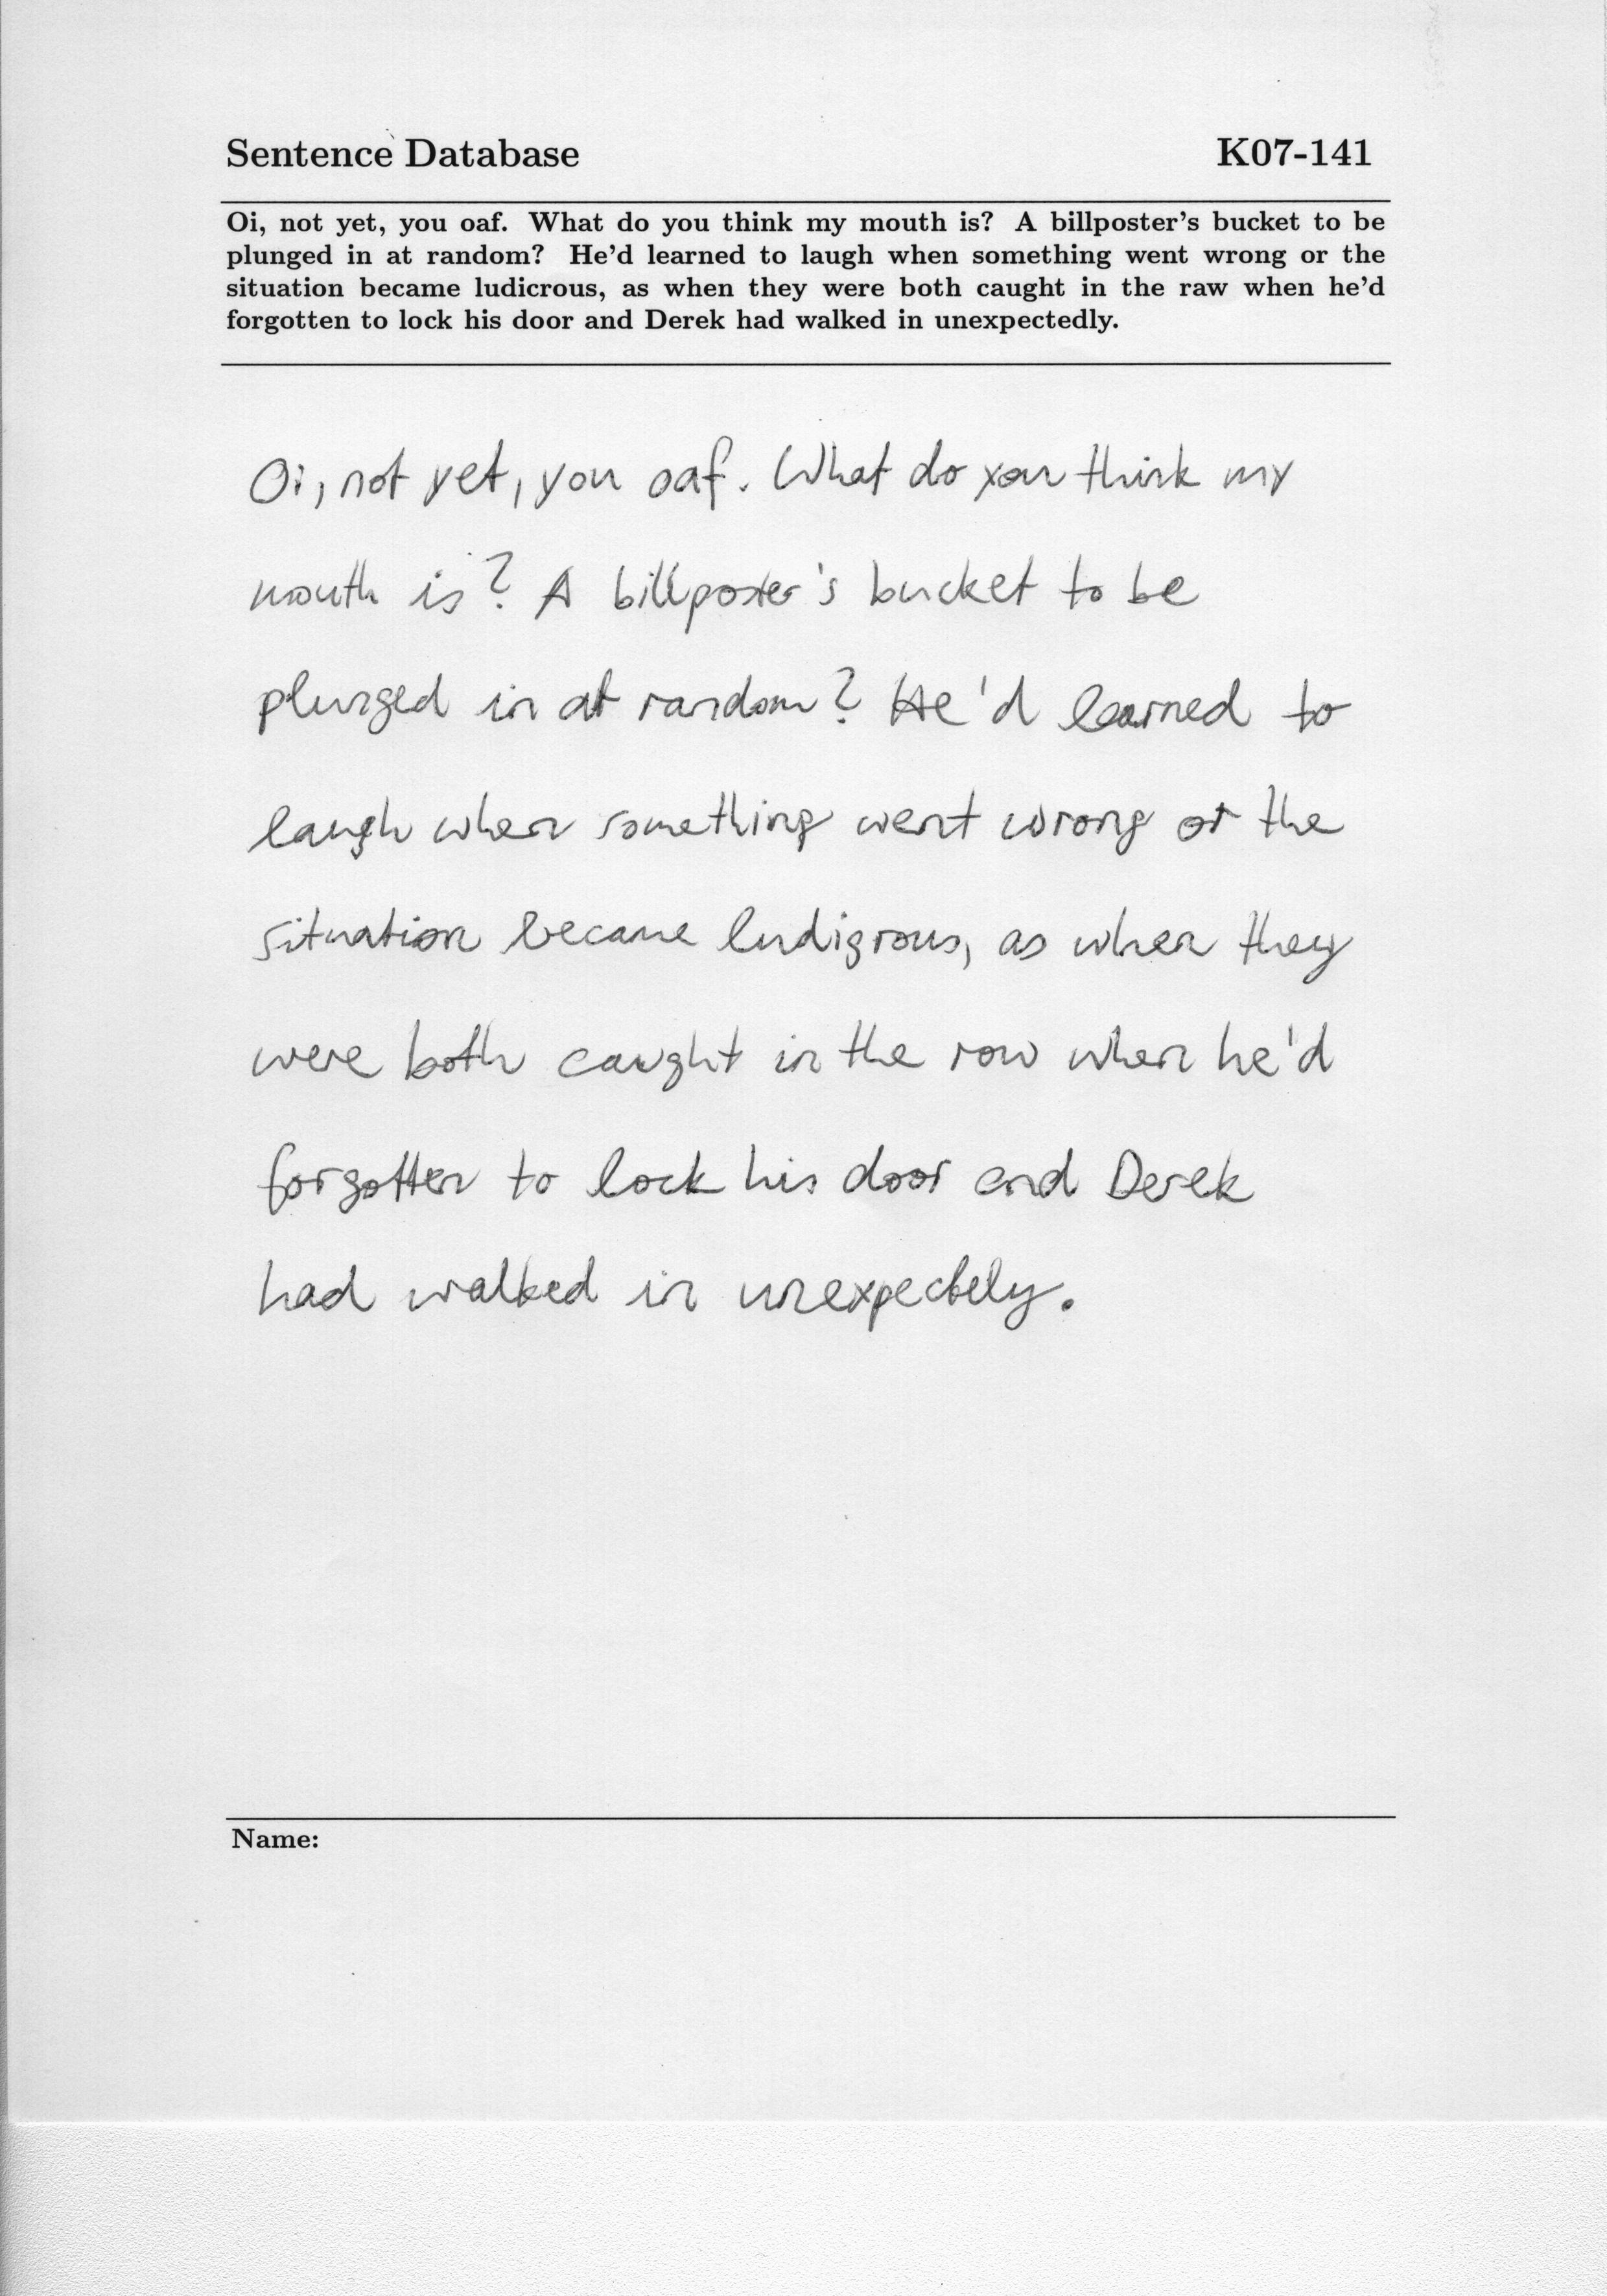 Sentence Database K07-141
Oi, not yet, you oaf. What do you think my mouth is? A billposter's bucket to be
plunged in at random? He'd learned to laugh when something went wrong or the
situation became ludicrous, as when they were both caught in the raw when he'd
forgotten to lock his door and Derek had walked in unexpectedly.
Oi, not yet, you oaf. What do you think my
mouth is? A billposter's bucket to be
plunged in at random? He'd learned to
laugh when something went wrong or the
situation became ludigrous, as when they
were both caught in the row when he'd
forgotten to lock his door and Derek
had walked in unexpectely.
Name: